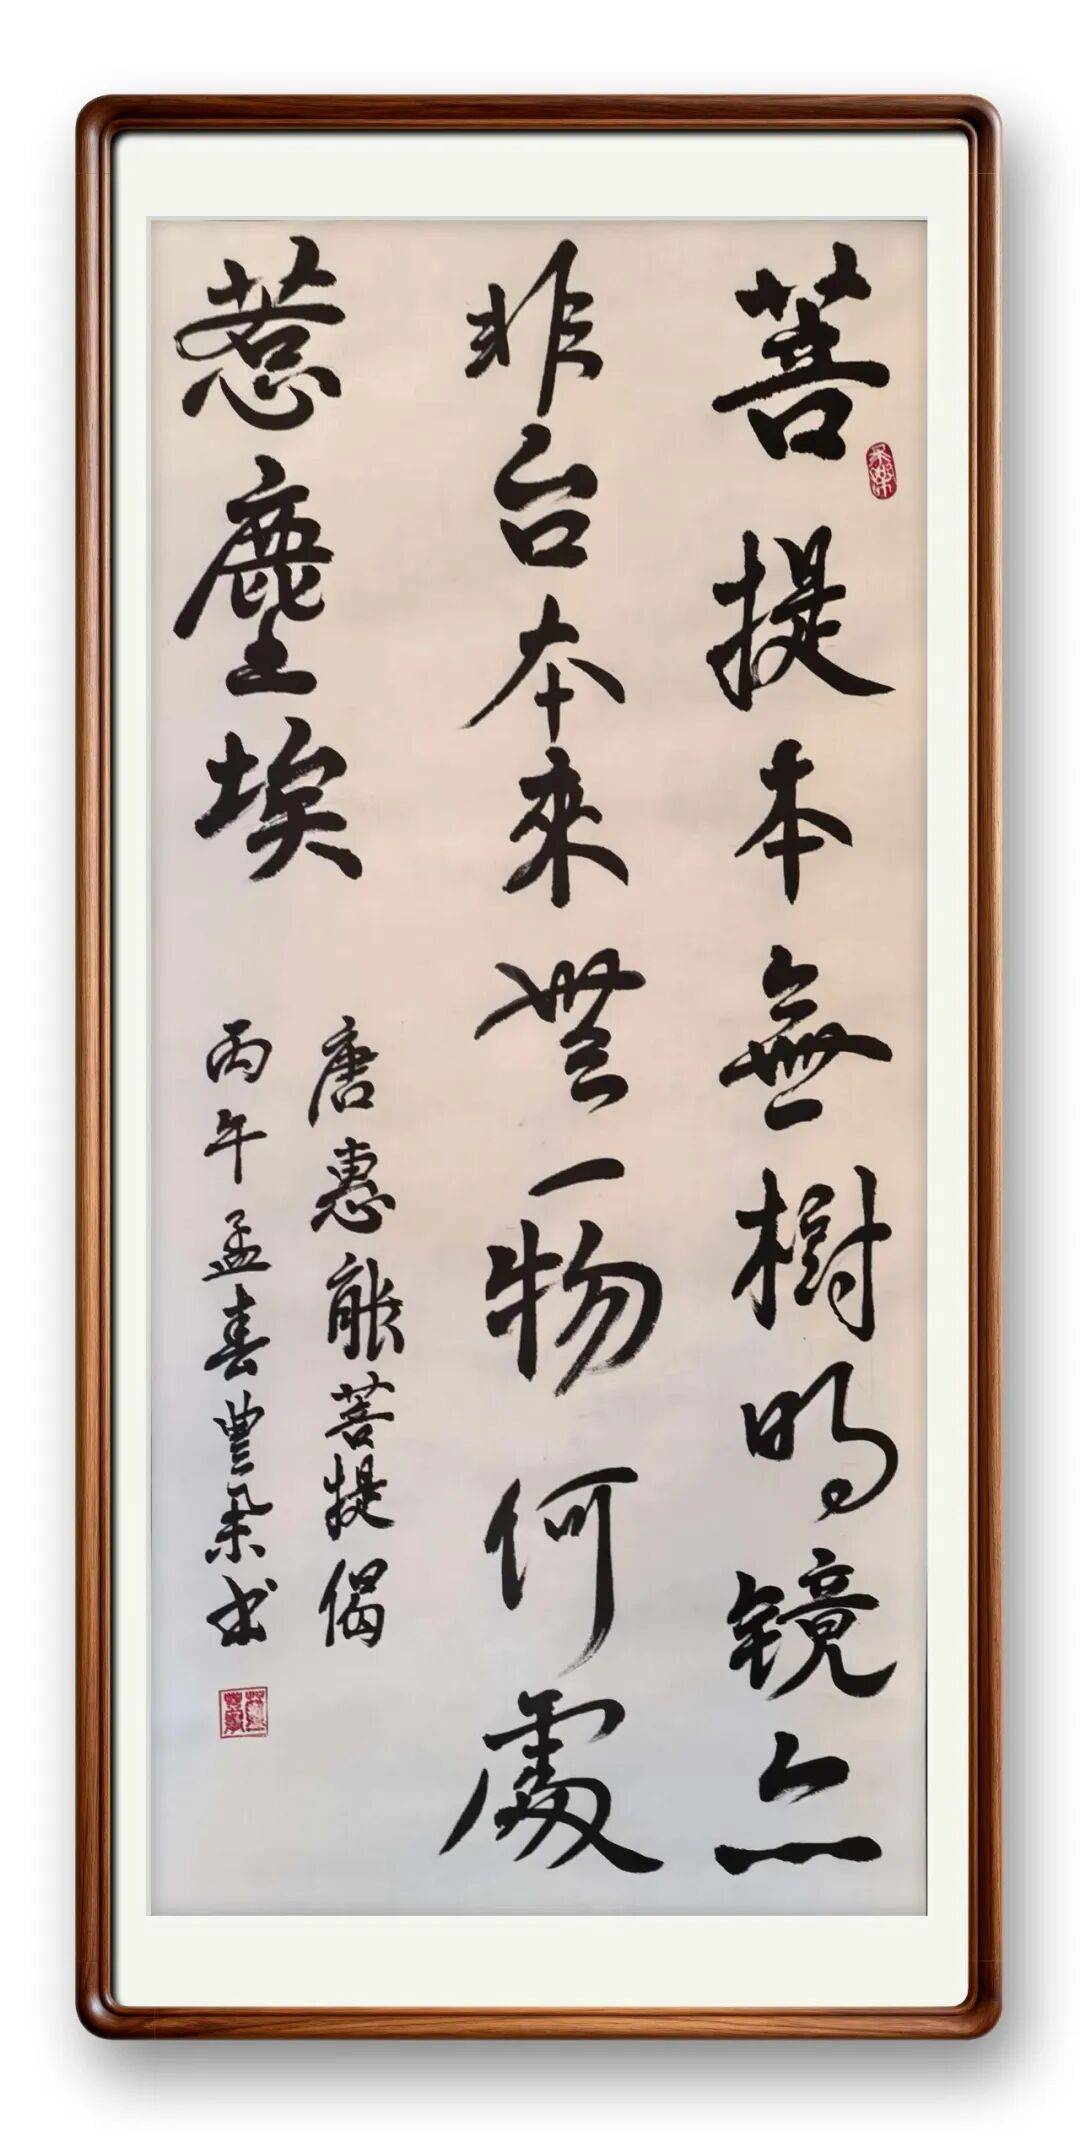 菩提本無樹明镜亦
非台本来無一物何處
惹塵埃
唐惠能菩提偈
丙午孟春豐采书